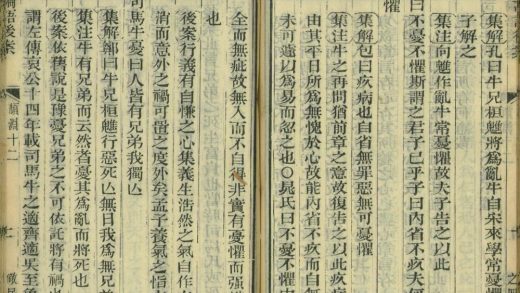 集解孔曰牛兄桓魋將為亂牛自宋來學常憂懼
子解之
集注向魋作亂牛常憂懼故夫子告之以此
曰不憂不懼斯謂之君子已乎子曰內省不疚
懼
集解包曰疚病也自省無罪惡無可憂懼
集注牛之再問猶前章之意故復告之以此
由其平日所為無愧於心故能內省不疚而自無
未可遽以為易而忽之也○晁氏曰不憂不懼由
全而無疵故無入而不自得非實有憂懼而强
也
後案行義有自慊之心集義生浩然之氣自
消而意外之禍可置之度外矣孟子養氣之悟
司馬牛憂曰人皆有兄弟我獨亡
集解鄭曰牛兄桓魋行惡死亡無日我為無兄
集注牛有兄弟而云然者憂其為亂而將死也
後案依舊說是豫憂兄弟之不可依託將有禍
謂左傳哀公十四年載司馬牛之適齊適吳至
語後案
顏淵十二